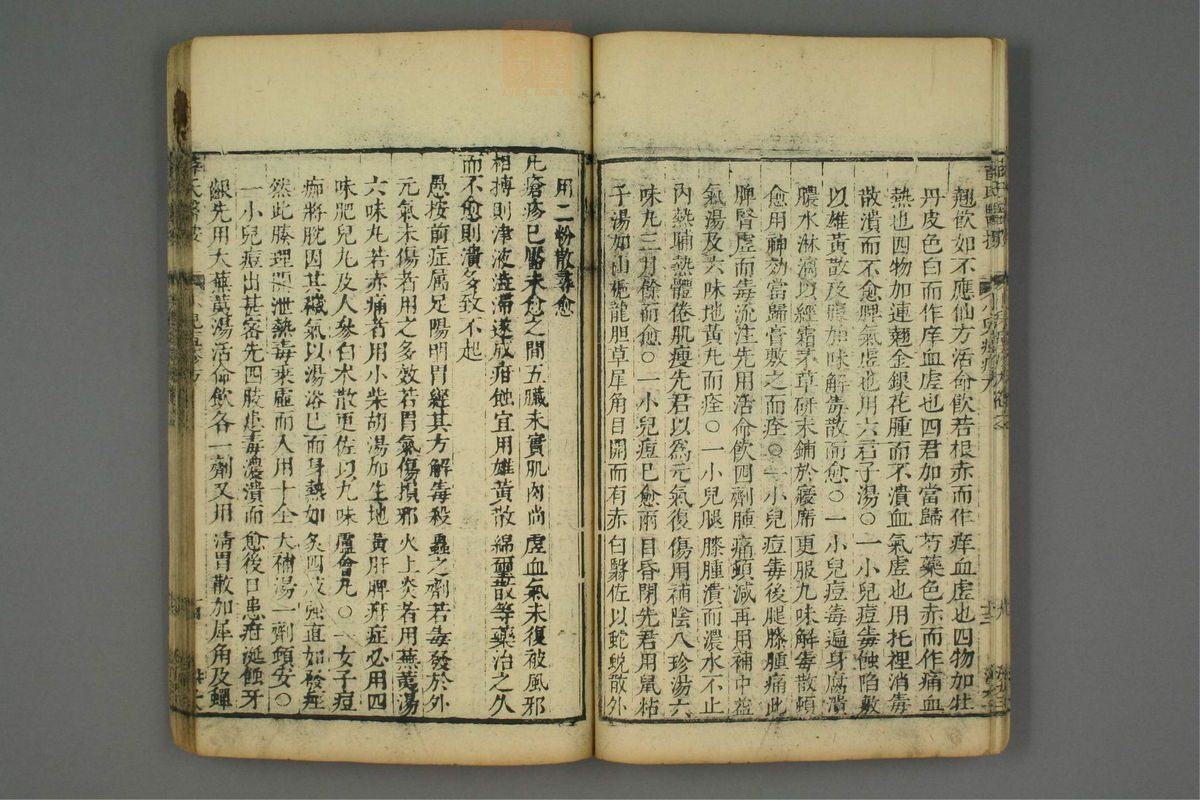 翹飲如不應仙方活命飲若根赤而作痒血虛也四物加牡
丹皮色白而作痒血虛也四君加當歸芍藥色赤而作痛血
熱也四物加連翹金銀花腫而不潰血氣虛也用托裡消毒
散潰而不愈脾氣虛也用六君子湯〇一小兒痘毒蝕陷敷
以雄黃散及服加味解毒散而愈〇一小兒痘毒遍身腐潰
膿水淋漓以經霜茅草研末鋪於寢席更服九味解毒散頓
愈用神効當歸膏敷之而痊〇一小兒痘毒後腿膝腫痛此
脾腎虛而毒流注先用活命飲四劑腫痛頓減再用補中益
氣湯及六味地黃丸而痊〇一小兒腿膝腫潰而濃水不止
內熱晡熱體倦肌瘦先君以為元氣復傷用補陰八珍湯六
味丸三月餘而愈〇一小兒痘已愈兩目昏閉先君用鼠粘
子湯加山梔龍胆草犀角目開而有赤白翳佐以蛇蛻散外
用二粉散尋愈
凡瘡疹已靨未愈之間五臟未實肌肉尚虛血氣未復被風邪
相搏則津液澁滯遂成疳蝕宜用雄黃散綿繭散等藥治之久
而不愈則潰多致不起
愚按前症属足陽明胃經其方解毒殺蟲之劑若毒發於外
元氣未傷者用之多效若胃氣傷損邪火上炎者用蕪荑湯
六味丸若赤痛者用小柴胡湯加生地黃肝脾疳症必用四
味肥兒丸及人參白朮散更佐以九味蘆會丸〇一女子痘
痂將脫因其穢氣以湯浴已而身熱如炙四肢強直如發痙
然此腠理開泄熱毒乘虛而入用十全大補湯一劑頓安〇
一小兒痘出甚密先四肢患毒濃潰而愈後口患疳涎蝕牙
齦先用大蕪荑湯活命飲各一劑又用清胃散加犀角及蟬